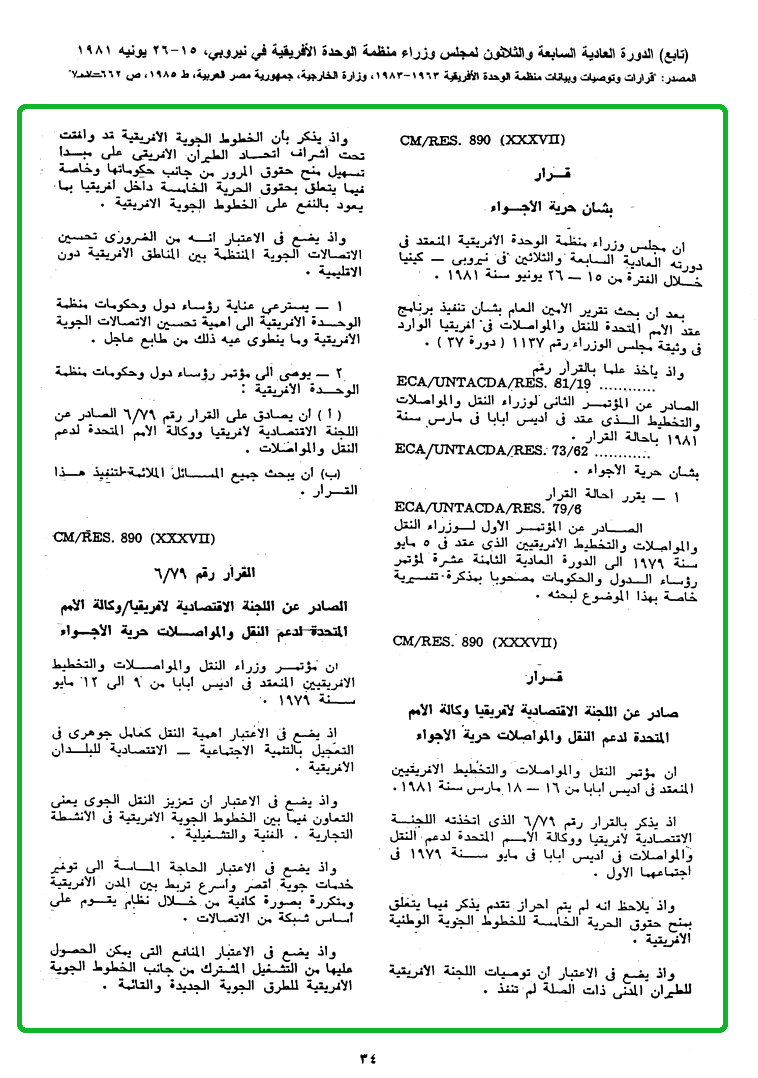 (تابع) الدورة العادية السابعة والثلاثون لمجلس وزراء منظمة الوحدة الأفريقية في نيروبي، ١٥-٢٦ يونيه ١٩٨١
المصدر: "قرارات وتوصيات وبيانات منظمة الوحدة الأفريقية ١٩٦٣-١٩٨٣، وزارة الخارجية، جمهورية مصر العربية، ط ١٩٨٥، ص
CM/RES. 890 (XXXVII)
قــرار
بشان حرية الاجــواء
ان مجلس وزراء منظمة الوحدة الافريقية المنعقد فى
دورته العادية السابعة والثلاثين فى نيروبى — كينيا
خــلال الفترة من ١٥ — ٢٦ يونيو سنة ١٩٨١ .
بعد ان بحث تقرير الامين العام بشان تنفيذ برنامج
عقد الامم المتحدة للنقل والمواصلات فى افريقيا الوارد
فى وثيقة مجلس الوزراء رقم ١١٣٧ ( دورة ٣٧ ) .
واذ ياخذ علما بالقرار رقم
ECA/UNTACDA/RES. 81/19 ............
الصادر عن المؤتمر الثانى لوزراء النقل والمواصلات
والتخطيط الــذى عقد فى اديس أبابا فى مارس سنة
١٩٨١ باحالة القرار .
ECA/UNTACDA/RES. 73/62 ............
بشان حرية الاجواء .
١ — يقرر احالة القرار
ECA/UNTACDA/RES. 79/6
الصــادر عن المؤتمر الاول لــوزراء النقل
والمواصلات والتخطيط الافريقيين الذى عقد فى ٥ مايو
سنة ١٩٧٩ الى الدورة العادية الثامنة عشرة لمؤتمر
رؤساء الــدول والحكومات مصحوبا بمذكرة تفسيرية
خاصة بهذا الموضوع لبحثه .
CM/RES. 890 (XXXVII)
قــرار
صادر عن اللجنة الاقتصادية لافريقيا وكالة الامم
المتحدة لدعم النقل والمواصلات حرية الاجواء
ان مؤتمر النقل والمواصلات والتخطيط الافريقيين
المنعقد فى اديس أبابا من ١٦ — ١٨ مارس سنة ١٩٨١.
اذ يذكر بالقرار رقم ٦/٧٩ الذى اتخذته اللجنــة
الاقتصادية لافريقيا ووكالة الامــم المتحدة لدعم النقل
والمواصلات فى اديس أبابا فى مايو ســنة ١٩٧٩ فى
اجتماعها الاول .
واذ يلاحظ انه لم يتم احراز تقدم يذكر فيما يتعلق
بمنح حقوق الحرية الخامسة للخطوط الجوية الوطنية
الافريقية .
واذ يضع فى الاعتبار ان توصيات اللجنة الافريقية
للطيران المدنى ذات الصلة لم تنفذ .
واذ يذكر بأن الخطوط الجوية الافريقية قد وافقت
تحت أشراف اتحــاد الطيران الافريقى على مبــدا
تسهيل منح حقوق المرور من جانب حكوماتها وخاصة
فيما يتعلق بحقوق الحرية الخامسة داخل افريقيا بما
يعود بالنفع على الخطوط الجوية الافريقية .
واذ يضع فى الاعتبار انــه من الضرورى تحسين
الاتصالات الجوية المنتظمة بين المناطق الافريقية دون
الاقليمية .
١ — يسترعى عناية رؤساء دول وحكومات منظمة
الوحــدة الافريقية الى اهمية تحسين الاتصالات الجوية
الافريقية وما ينطوى عيه ذلك من طابع عاجل .
٢ — يوصى الى مؤتمر رؤساء دول وحكومات منظمة
الوحــدة الافريقية :
( أ ) أن يصادق على القرار رقم ٦/٧٩ الصادر عن
اللجنة الاقتصادية لافريقيا ووكالة الامم المتحدة لدعم
النقل والمواصلات .
(ب) أن يبحث جميع المســائل الملائمة لتنفيذ هــذا
القــرار .
CM/RES. 890 (XXXVII)
القرار رقم ٦/٧٩
الصادر عن اللجنة الاقتصادية لافريقيا/وكالة الامم
المتحدة لدعم النقل والمواصــلات حرية الاجــواء
ان مؤتمــر وزراء النقل والمواصــلات والتخطيط
الافريقيين المنعقد فى اديس أبابا من ٩ الى ١٢ مايو
ســنة ١٩٧٩ .
اذ يضع فى الاعتبار اهمية النقل كعامل جوهرى فى
التعجيل بالتنمية الاجتماعية — الاقتصادية للبلــدان
الافريقية .
واذ يضع فى الاعتبار ان تعزيز النقل الجوى يعنى
التعاون فيما بين الخطوط الجوية الافريقية فى الانشطة
التجارية . الفنية والتشغيلية .
واذ يضع فى الاعتبار الحاجة المــاسة الى توفير
خدمات جوية اقصر وأسرع تربط بين المدن الافريقية
ومتكررة بصورة كافية من خــلال نظام يقــوم على
أساس شبكة من الاتصالات .
واذ يضع فى الاعتبار المنافع التى يمكن الحصول
عليها من التشغيل المشترك من جانب الخطوط الجوية
الافريقية للطرق الجوية الجديدة والقائمة .
٣٤